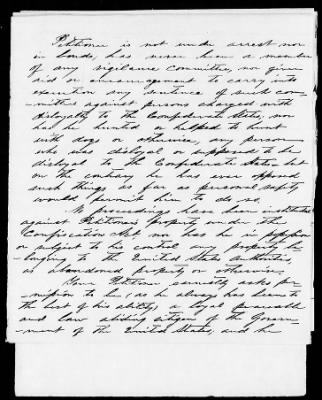 Petitioner is not under arrest nor
in bonds, has never been a member
of any vigilance committee, nor given
aid or encouragement to carry into
execution any sentence of such com-
mittee against persons charged with
disloyalty to the Confederate States, nor
has he hunted or helped to hunt
with dogs or otherwise, any person
who was disloyal or supposed to be
disloyal to the Confederate States but
on the contrary he has ever opposed
such things as far as personal safety
would permit him to do so.
No proceedings have been instituted
against Petitioners property under the
Confiscation Act nor has he in possession
or subject to his control any property be-
longing to the United States Authorities,
as abandoned property or otherwise.
Your Petitioner earnestly asks per-
mission to be (as he always has been to
the best of his ability), a loyal peaceable
and law abiding citizen of the Govern-
ment of the United States, and he